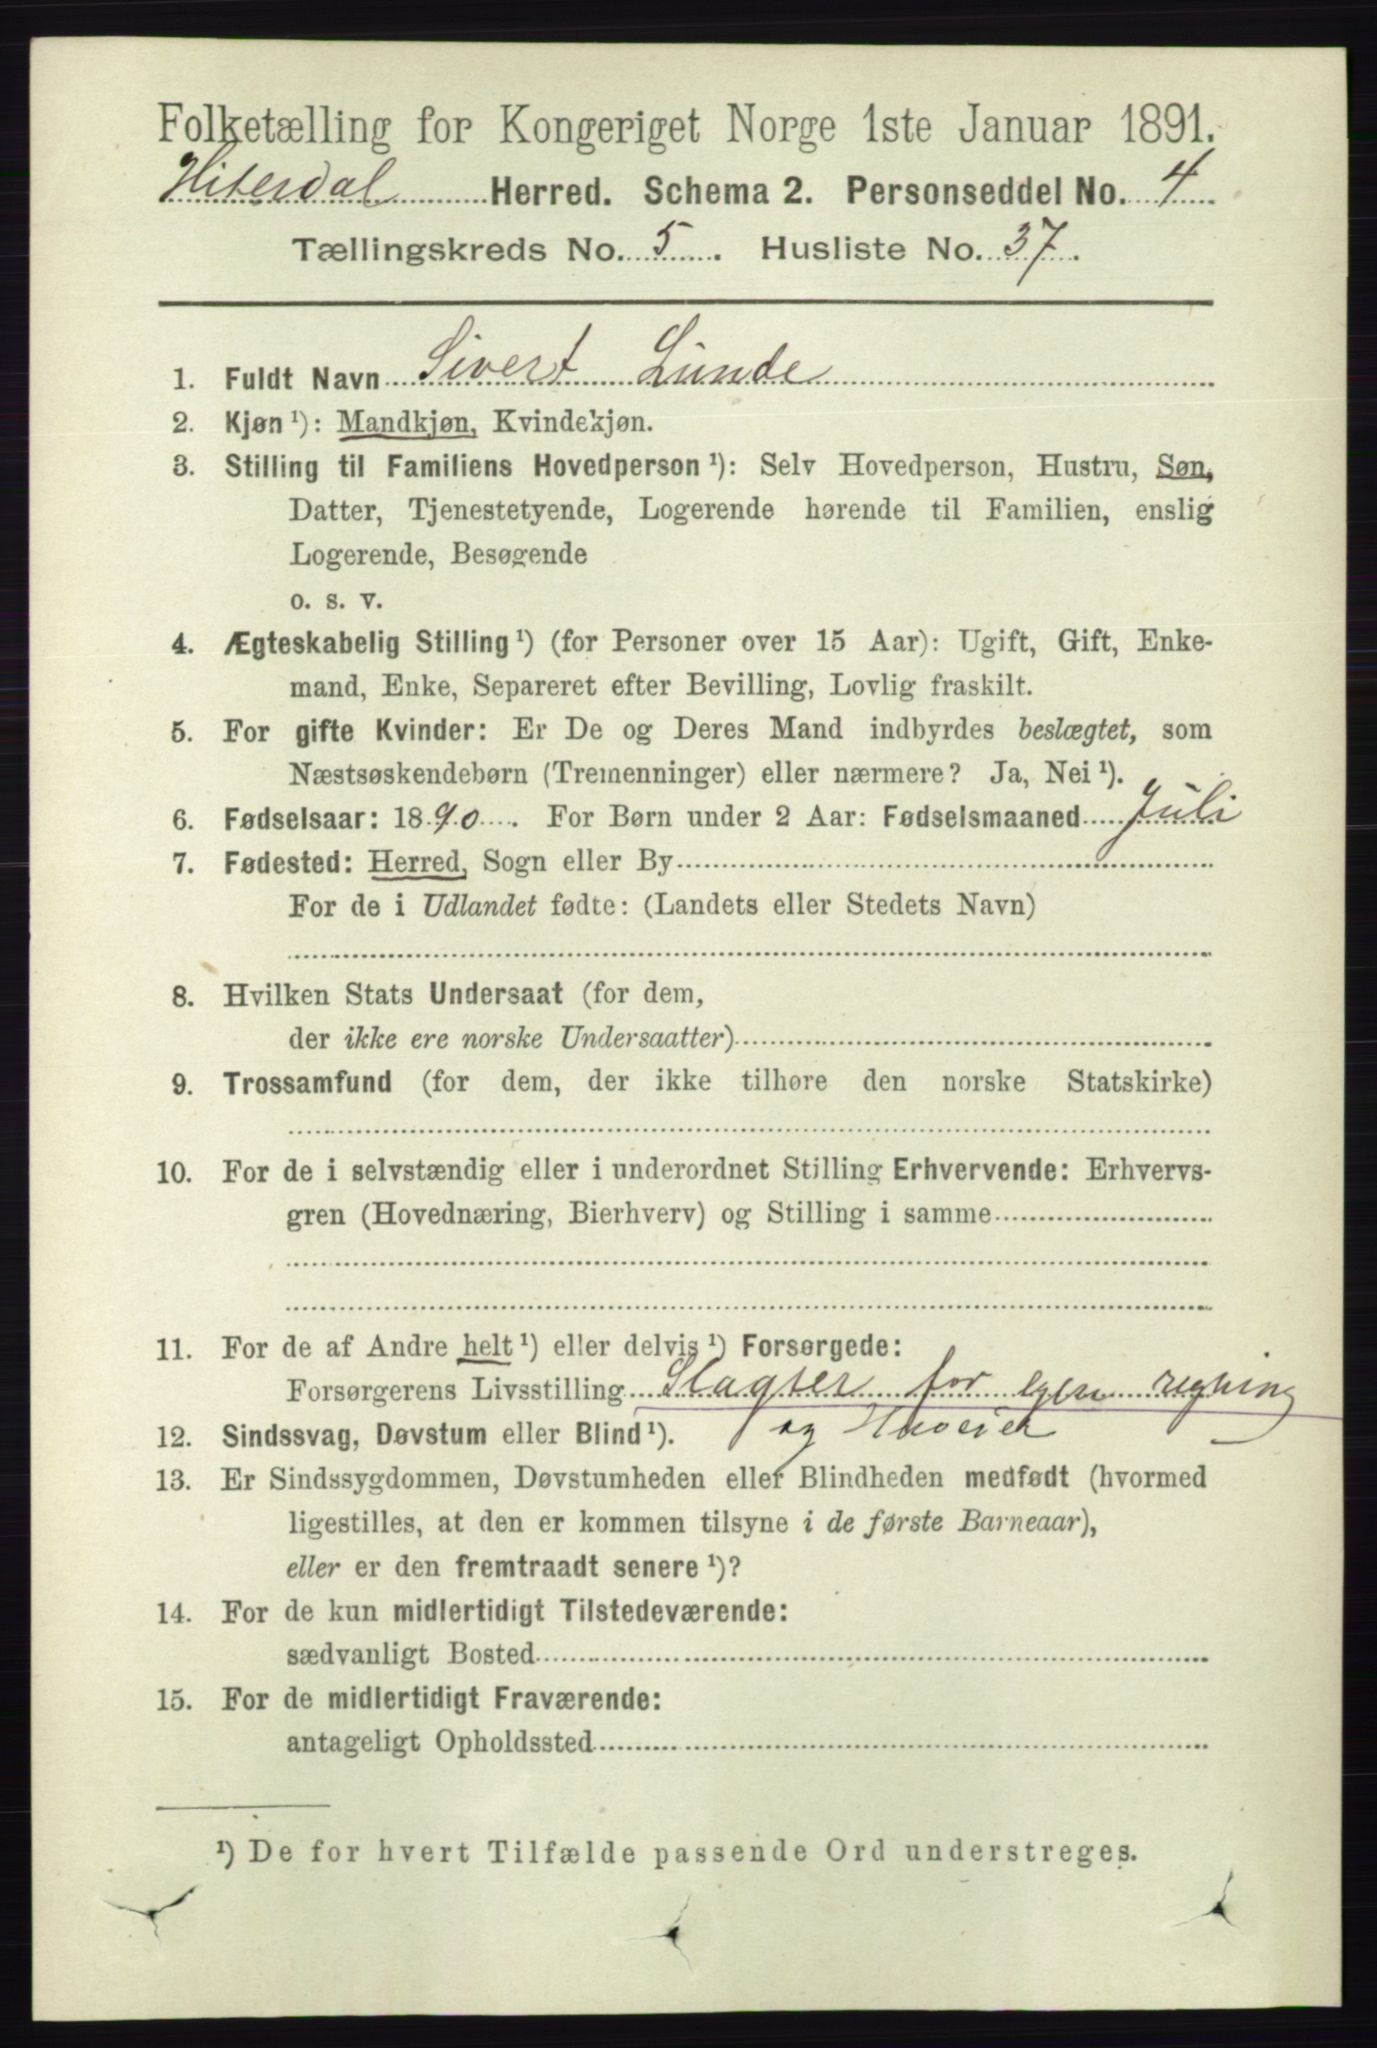 Folketælling for Kongeriget Norge 1ste Januar 1891.
Hiterdal Herred. Schema 2. Personseddel No. 4
Tællingskreds No. 5. Husliste No. 37.
1. Fuldt Navn Sivert Lunde
2. Kjøn ¹): Mandkjøn, Kvindekjøn.
3. Stilling til Familiens Hovedperson ¹): Selv Hovedperson, Hustru, Søn,
Datter, Tjenestetyende, Logerende hørende til Familien, enslig
Logerende, Besøgende
o. s. v.
4. Ægteskabelig Stilling ¹) (for Personer over 15 Aar): Ugift, Gift, Enke-
mand, Enke, Separeret efter Bevilling, Lovlig fraskilt.
5. For gifte Kvinder: Er De og Deres Mand indbyrdes beslægtet, som
Næstsøskendebørn (Tremenninger) eller nærmere? Ja, Nei ¹).
6. Fødselsaar: 1890. For Børn under 2 Aar: Fødselsmaaned Juli
7. Fødested: Herred, Sogn eller By
For de i Udlandet fødte: (Landets eller Stedets Navn)
8. Hvilken Stats Undersaat (for dem,
der ikke ere norske Undersaatter)
9. Trossamfund (for dem, der ikke tilhøre den norske Statskirke)
10. For de i selvstændig eller i underordnet Stilling Erhvervende: Erhvervs-
gren (Hovednæring, Bierhverv) og Stilling i samme
11. For de af Andre helt ¹) eller delvis ¹) Forsørgede:
Forsørgerens Livsstilling Slagter for egen regning
og
12. Sindssvag, Døvstum eller Blind ¹).
13. Er Sindssygdommen, Døvstumheden eller Blindheden medfødt (hvormed
ligestilles, at den er kommen tilsyne i de første Barneaar),
eller er den fremtraadt senere ¹)?
14. For de kun midlertidigt Tilstedeværende:
sædvanligt Bosted
15. For de midlertidigt Fraværende:
antageligt Opholdssted
¹) De for hvert Tilfælde passende Ord understreges.